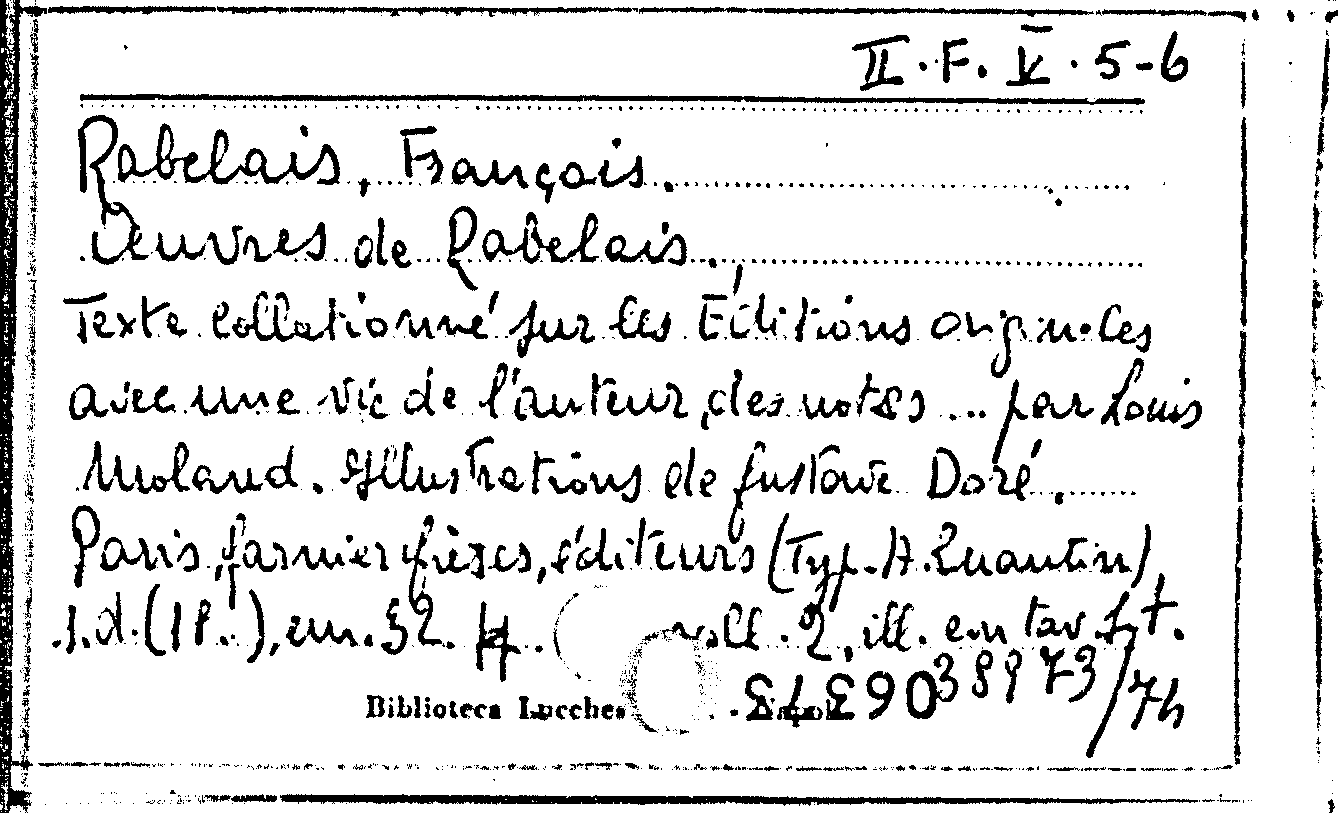 II.F.V.5-6
Rabelais, François.
Œuvres de Rabelais.
Texte collationné sur les Éditions originales
avec une vie de l'auteur, des notes ... par Louis
Moland. Illustrations de Gustave Doré.
Paris, Garnier frères, éditeurs (Typ. A. Quantin)
s.d. (18..), cm. 32. voll. 2, ill. e in tav. f.t.
38973/74
Biblioteca Lucches